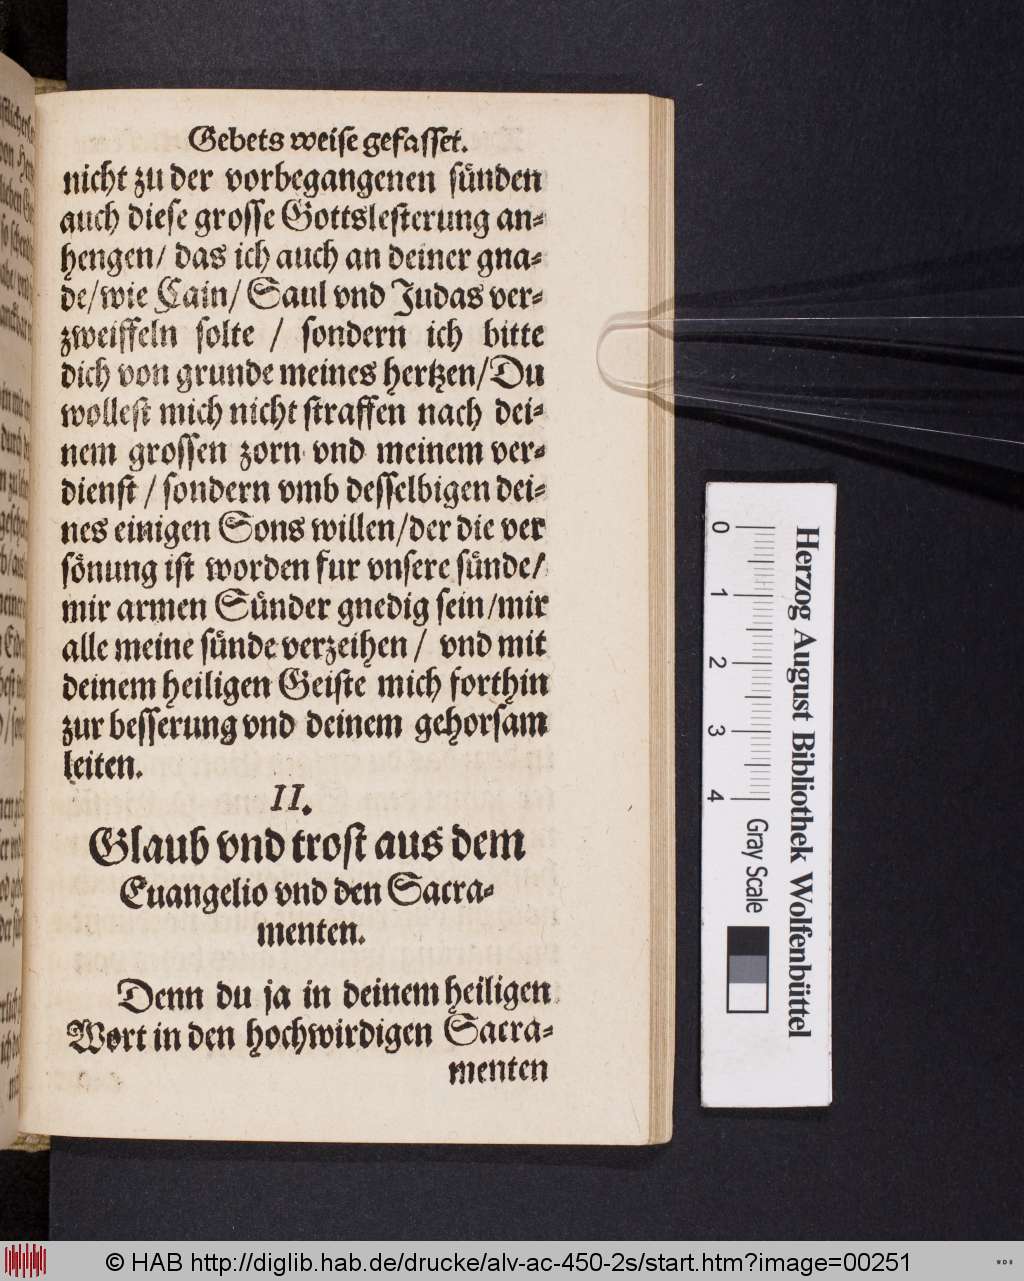 Gebets weise gefasset.
nicht zu der vorbegangenen sünden
auch diese grosse Gottslesterung an-
hengen/ das ich auch an deiner gna-
de/wie Cain/ Saul vnd Judas ver-
zweiffeln solte / sondern ich bitte
dich von grunde meines hertzen/Du
wollest mich nicht straffen nach dei-
nem grossen zorn vnd meinem ver-
dienst / sondern vmb desselbigen dei-
nes einigen Sons willen/der die ver
sönung ist worden fur vnsere sünde/
mir armen Sünder gnedig sein/mir
alle meine sünde verzeihen / vnd mit
deinem heiligen Geiste mich forthin
zur besserung vnd deinem gehorsam
leiten.
II.
Glaub vnd trost aus dem
Euangelio vnd den Sacra-
menten.
Denn du ja in deinem heiligen
Wort in den hochwirdigen Sacra-
menten
0 1 2 3 4
Gray Scale
Herzog August Bibliothek Wolfenbüttel
© HAB http://diglib.hab.de/drucke/alv-ac-450-2s/start.htm?image=00251